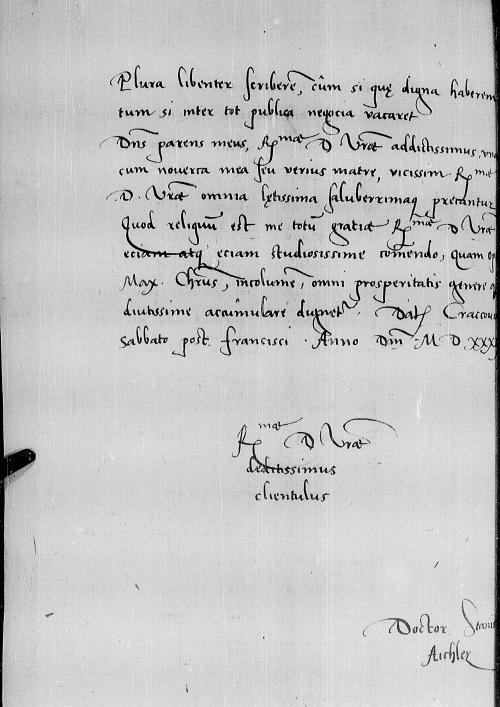 Plura libenter scriberē, cūm si quę digna haberem
tum si inter tot publica negocia vacaret
Dn̄s parens meus, Rmae D Vrae addictissimus,
cum noverca mea seu verius matre, vicissim Rmae
D. Vrae omnia lętissima saluberrimaq precantur
Quod reliquū est me totū gratiae Rmae D Vrae
eciam atq eciam studiosissime cōmendo, quam
Max. Chrūs, incolumē, omni prosperitatis genere
diutissime accūmulare dignetr. Dat Craccov
Sabbato post Francisci. Anno Dni. M D XXX
Rmae D Vrae
deditissimus
clientulus
Doctor Stanis
Aichler